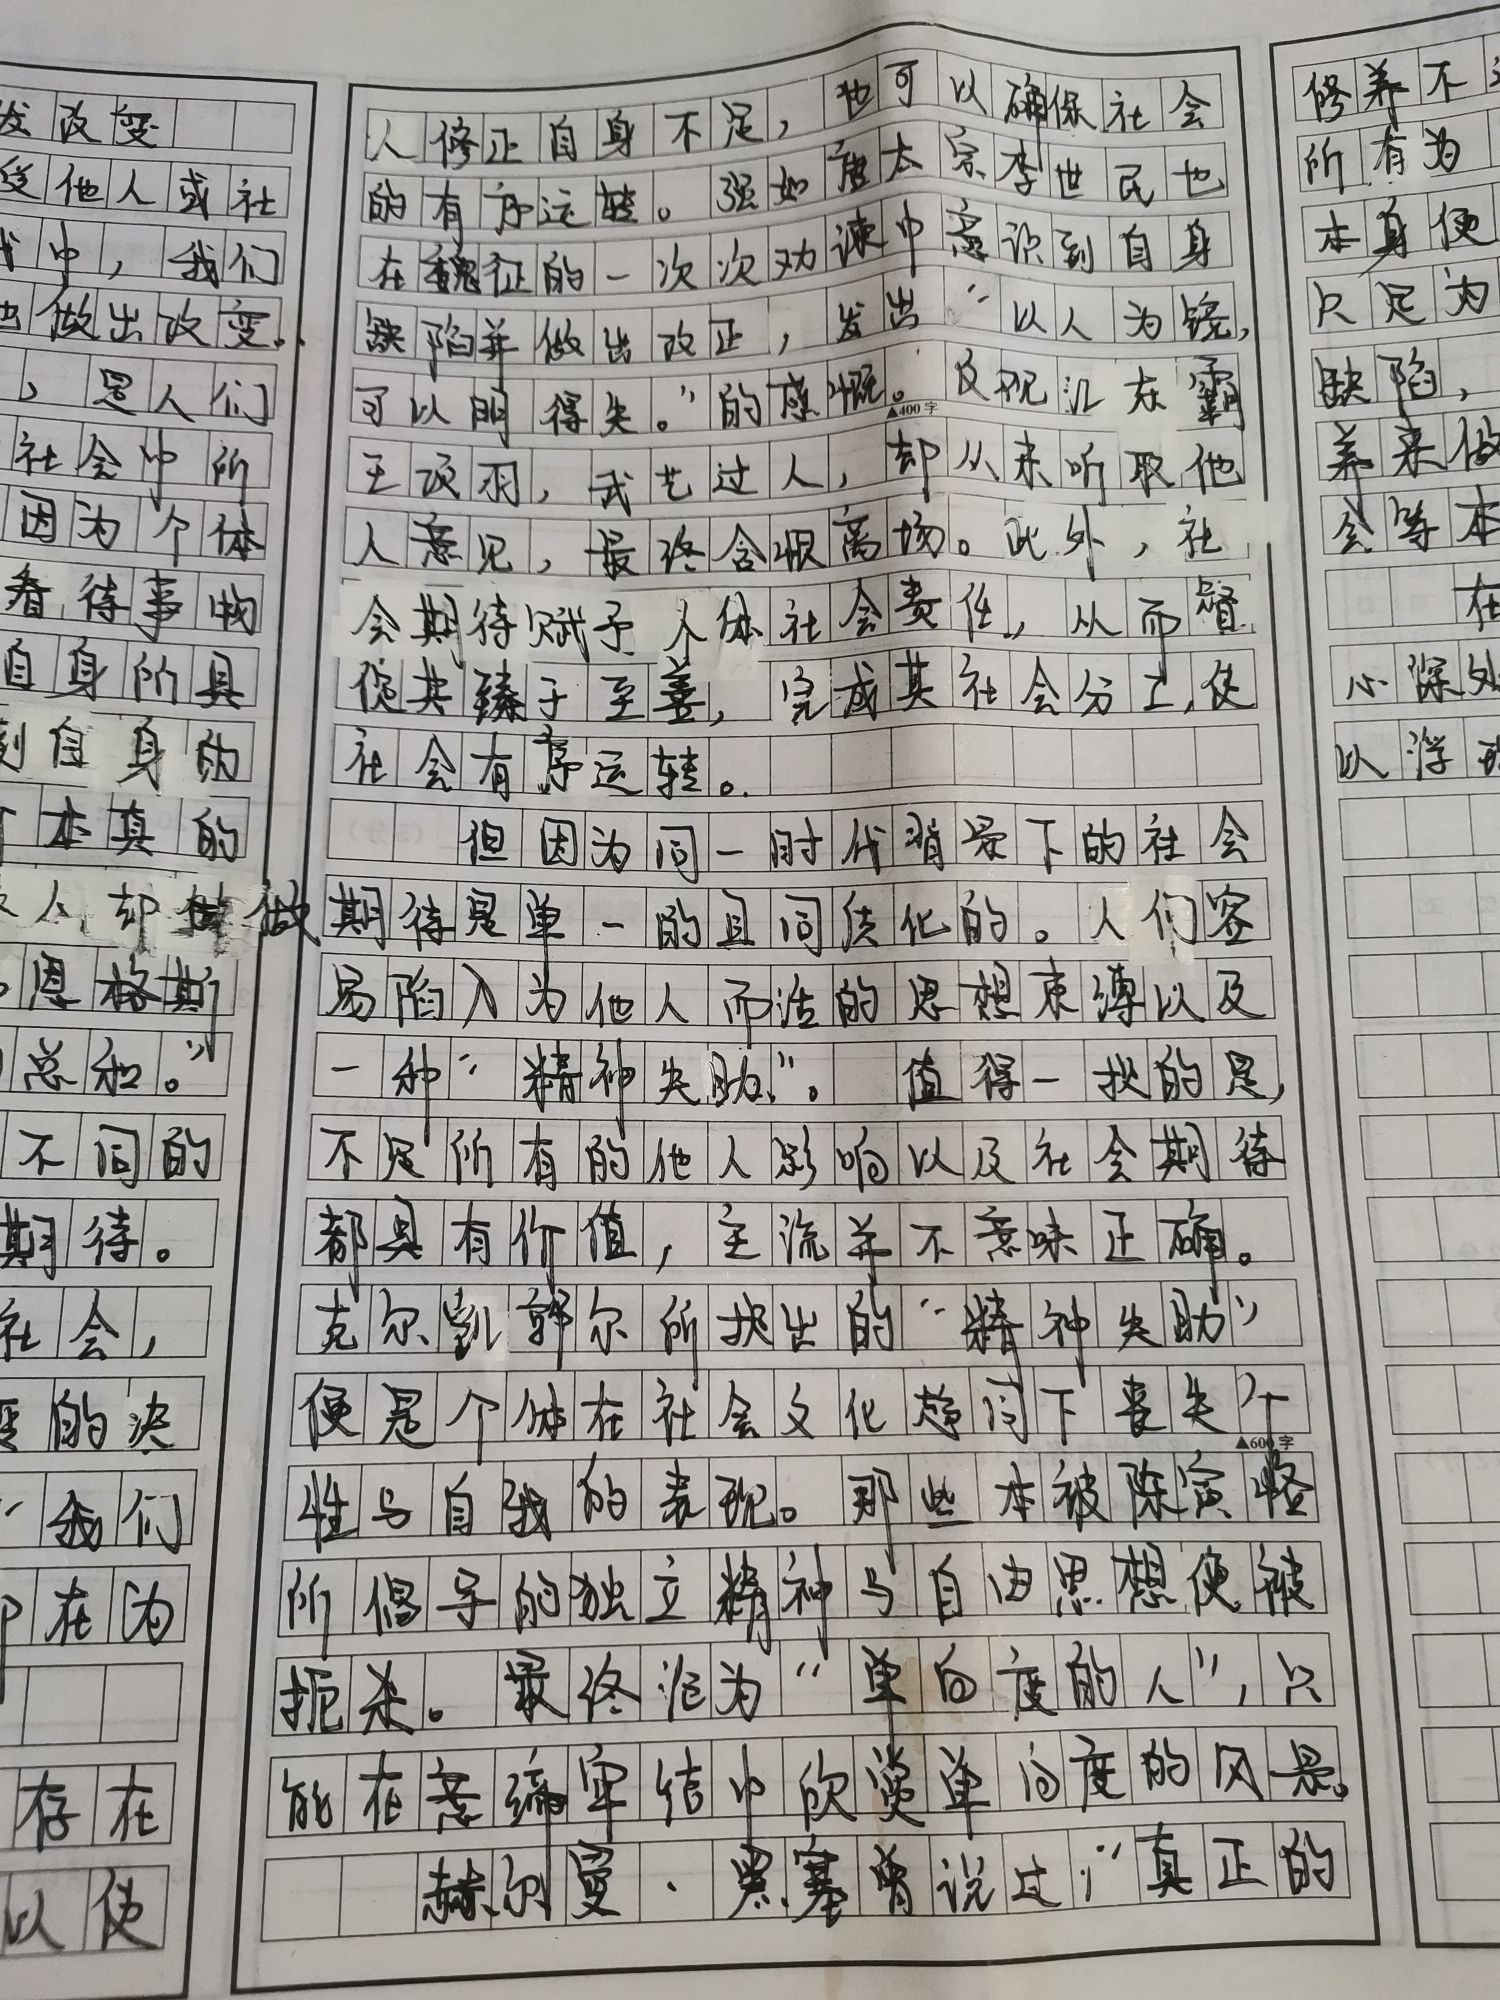 发改变
他人或社
中，我们
做出改变。
，是人们
社会中所
因为个体
看待事物
自身所具
到自身的
本真的
人却做
恩格斯
总和。”
不同的
期待。
社会，
的决
“我们
在为
存在
以使
人修正自身不足，也可以确保社会
的有序运转。强如唐太宗李世民也
在魏征的一次次劝谏中意识到自身
缺陷并做出改正，发出“以人为镜，
可以明得失。”的感慨。反观江东霸
▲400字
王项羽，武艺过人，却从未听取他
人意见，最终含恨离场。此外，社
会期待赋予人体社会责任，从而督
促其臻于至善，完成其社会分工，使
社会有序运转。
但因为同一时代背景下的社会
期待是单一的且同质化的。人们容
易陷入为他人而活的思想束缚以及
一种“精神失助”。值得一提的是，
不是所有的他人影响以及社会期待
都具有价值，主流并不意味正确。
克尔凯郭尔所提出的“精神失助”
便是个体在社会文化趋同下丧失个
▲600字
性与自我的表现。那些本被陈寅恪
所倡导的独立精神与自由思想便被
扼杀。最终沦为“单向度的人”，只
能在意缔牢结中欣赏单向度的风景。
赫尔曼·黑塞曾说过：“真正的
修养不
所有为
本身便
只是为
缺陷，
养来做
会等本
在
心深处
以浮